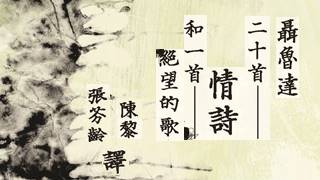 聶魯達
二十首
情詩
和一首
絕望的歌
陳黎
張芬齡
譯